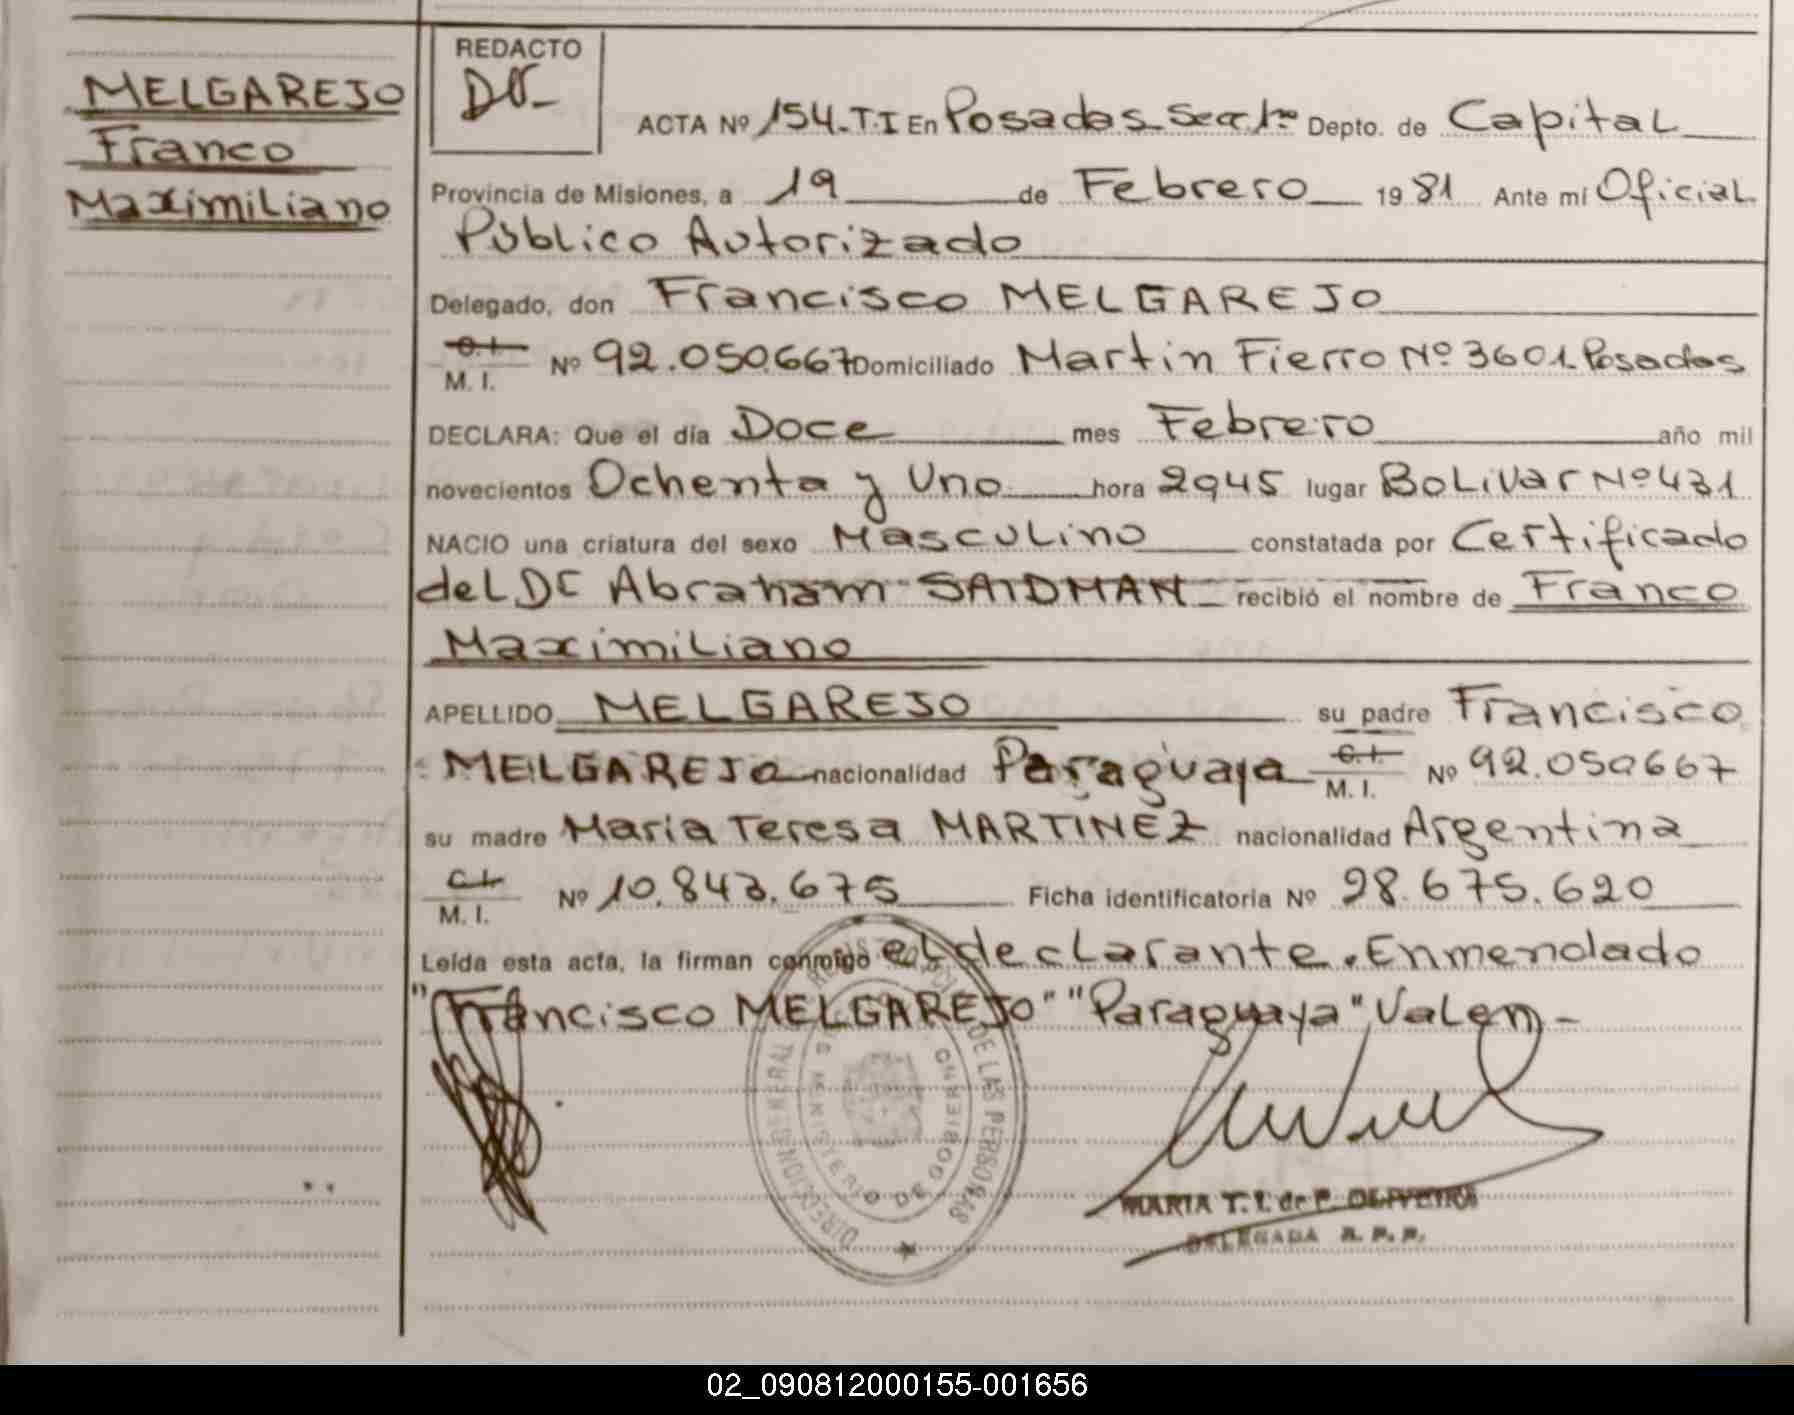 MELGAREJO
Franco
Maximiliano
REDACTO
ACTA Nº 154-T.I En Posadas Secc 1ra Depto. de Capital
Provincia de Misiones, a 19 de Febrero 1981 Ante mí Oficial
Público Autorizado
Delegado, don Francisco MELGAREJO
C.I.
M. I. Nº 92.050.667 Domiciliado Martin Fierro Nº 3601 Posadas
DECLARA: Que el día Doce mes Febrero año mil
novecientos Ochenta y Uno hora 2045 lugar Bolivar Nº 431
NACIO una criatura del sexo Masculino constatada por Certificado
del Dr Abraham SAIDMAN recibió el nombre de Franco
Maximiliano
APELLIDO MELGAREJO su padre Francisco
MELGAREJO nacionalidad Paraguaya C.I. M. I. Nº 92.050667
su madre Maria Teresa MARTINEZ nacionalidad Argentina
C.I.
M. I. Nº 10.843.675 Ficha identificatoria Nº 28.675.620
Leída esta acta, la firman conmigo el declarante. Enmendado
"Francisco MELGAREJO" "Paraguaya" Valen-
DIRECCION GENERAL REGISTRO DE LAS PERSONAS
MINISTERIO DE GOBIERNO
MARIA T. I. de P. OLIVEIRA
DELEGADA R. P. P.
02_090812000155-001656